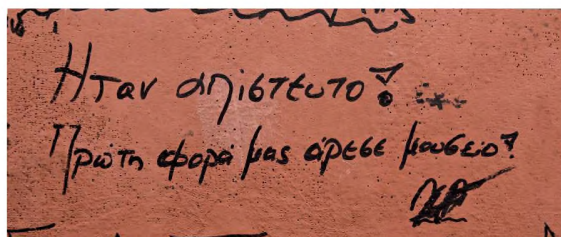 Ήταν απίστευτο!
Πρώτη φορά μας άρεσε μουσείο!